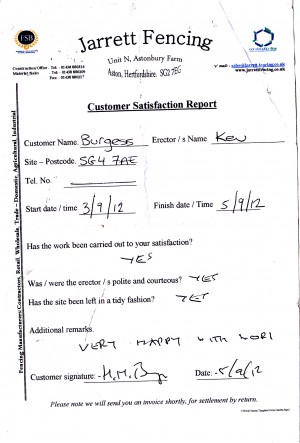 FSB
Jarrett Fencing
Unit N, Astonbury Farm
Aston, Hertfordshire. SG2 7EG
Construction/Office - Tel: 01438
Material Sales - Tel: 01438
Fax: 01438
e mail - sales@jarrett-fencing.co.uk
www.jarrettfencing.co.uk
Customer Satisfaction Report
Customer Name. Burgess Erector / s Name Kev
Site – Postcode. SG4 7AE
Tel. No.
Start date / time 3/9/12 Finish date / Time 5/9/12
Has the work been carried out to your satisfaction?
YES
Was / were the erector / s polite and courteous? YES
Has the site been left in a tidy fashion? YES
Additional remarks.
VERY HAPPY WITH WORK
Customer signature: Date: 5/9/12
Please note we will send you an invoice shortly, for settlement by return.
Fencing Manufacturers/Contractors, Retail, Wholesale, Trade – Domestic, Agricultural, Industrial